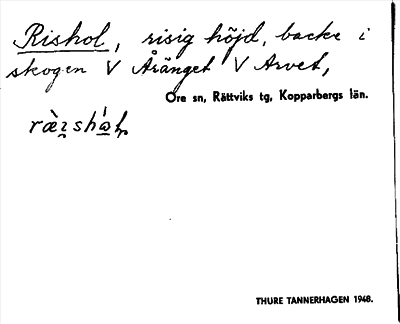 Rishol, risig höjd, backe i
skogen V Åränget V Arvet,
Ore sn, Rättviks tg, Kopparbergs län.
THURE TANNERHAGEN 1948.